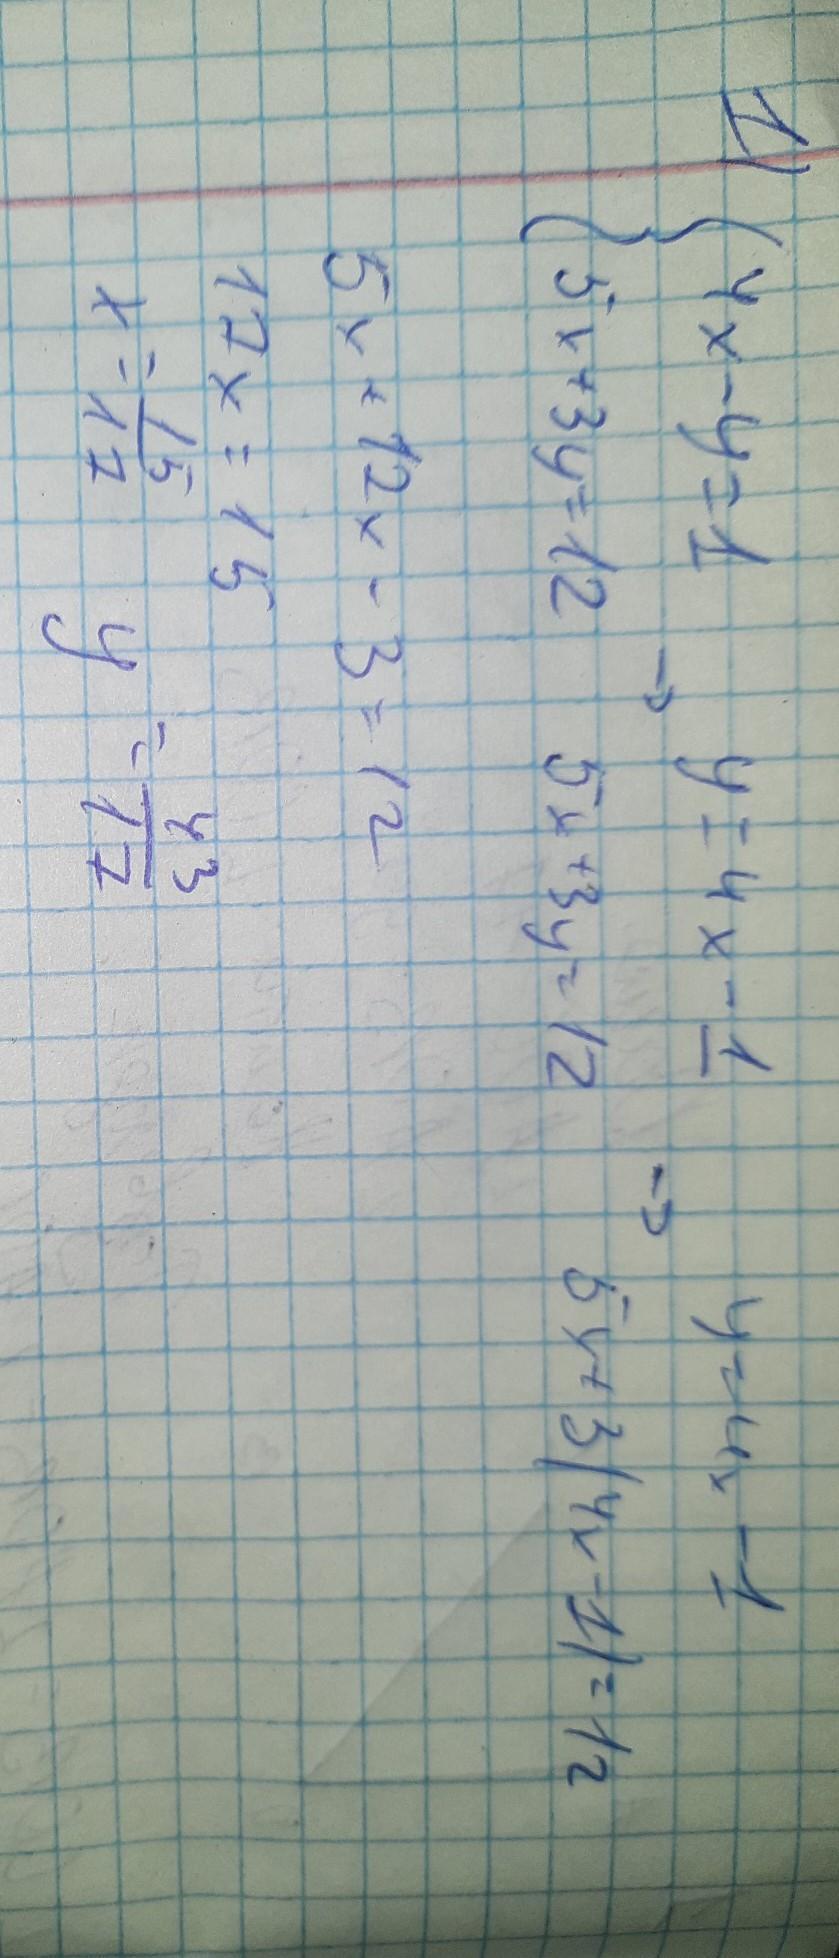 1) { 4x-y=1 → y=4x-1 → y=4x-1
5x+3y=12 5x+3y=12 5x+3(4x-1)=12
5x+12x-3=12
17x=15
x=15/17 y=43/17